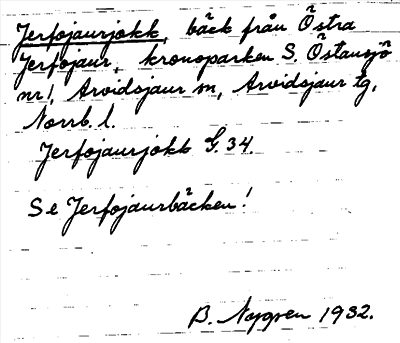 Jerfojaurjokk, bäck från Östra
Jerfojaur, kronoparken S. Östansjö
nr 1, Arvidsjaur sn, Arvidsjaur tg,
Norrb. l.
Jerfojaurjokk G. 34.
Se Jerfojaurbäcken!
B. Nygren 1932.